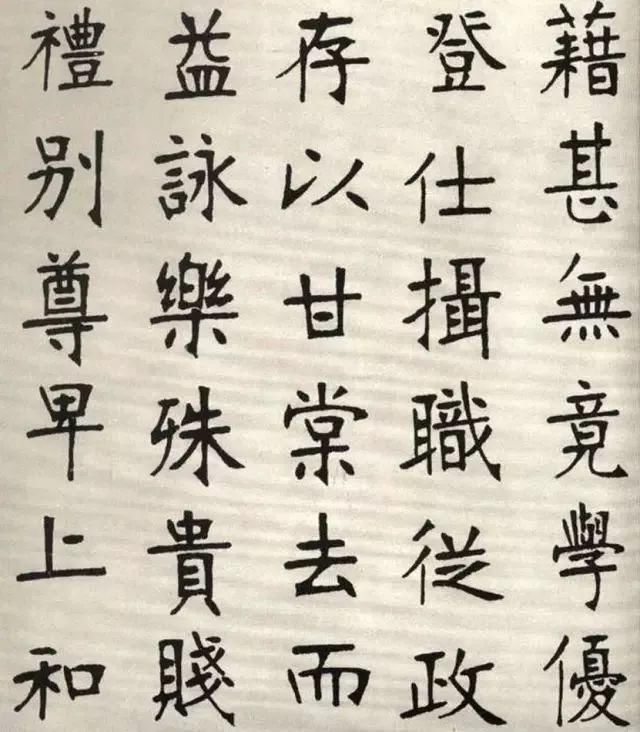 藉甚無竟學優
登仕攝職從政
存以甘棠去而
益詠樂殊貴賤
禮別尊卑上和